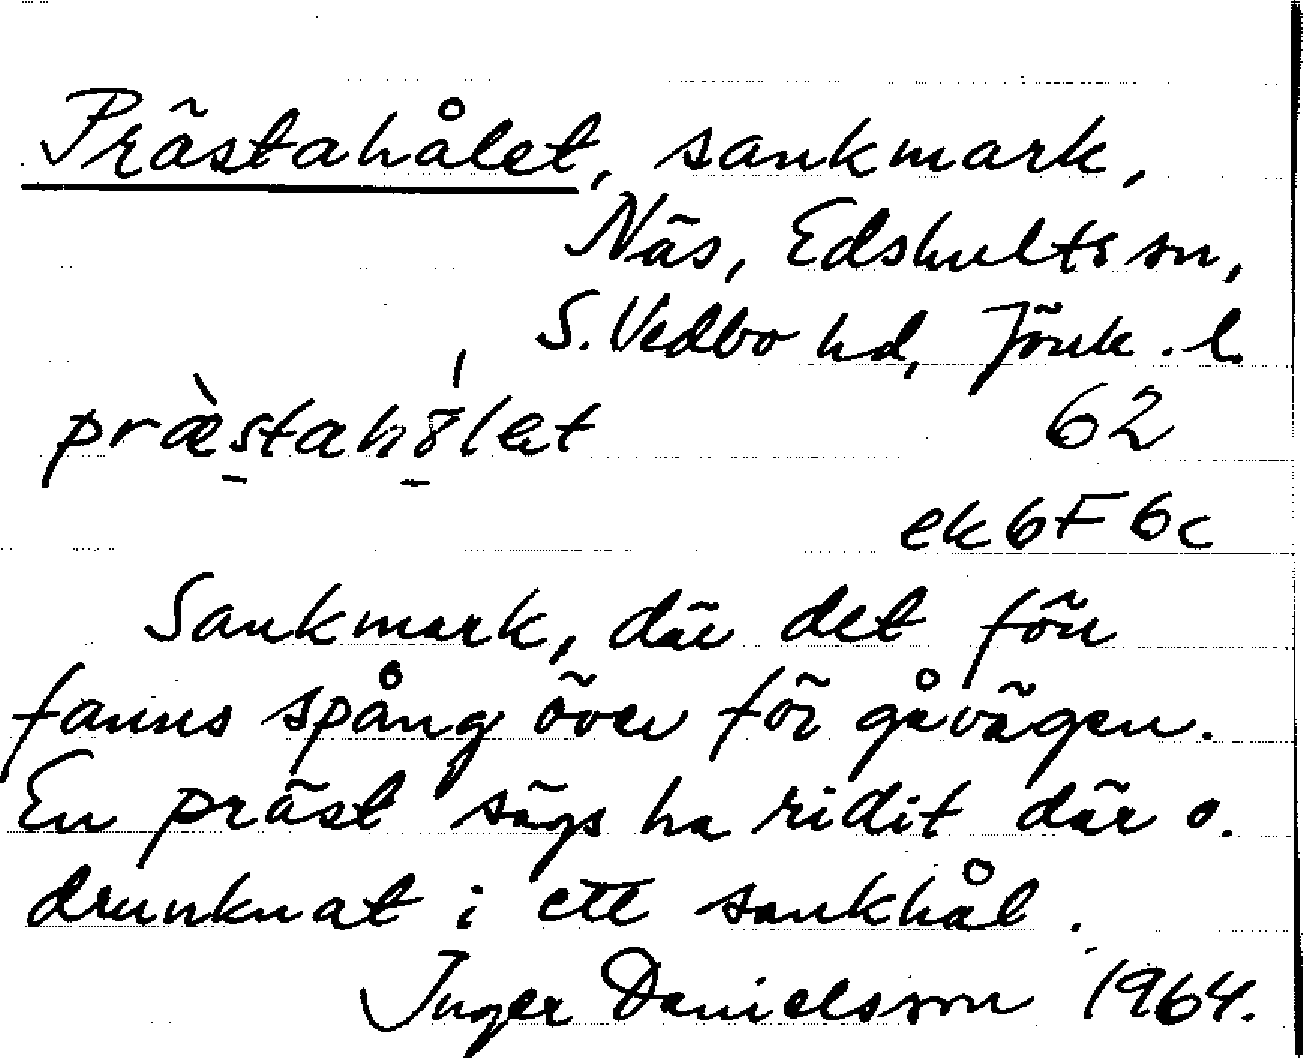 Prästahålet, sankmark,
Näs, Edshults sn,
S. Vedbo hd, Jönk. l.
præ̀stahólet
62
ek 6F 6c
Sankmark, där det förr
fanns spång över för gåvägen.
En präst sägs ha ridit där o.
drunknat i ett sankhål.
Inger Danielsson 1964.